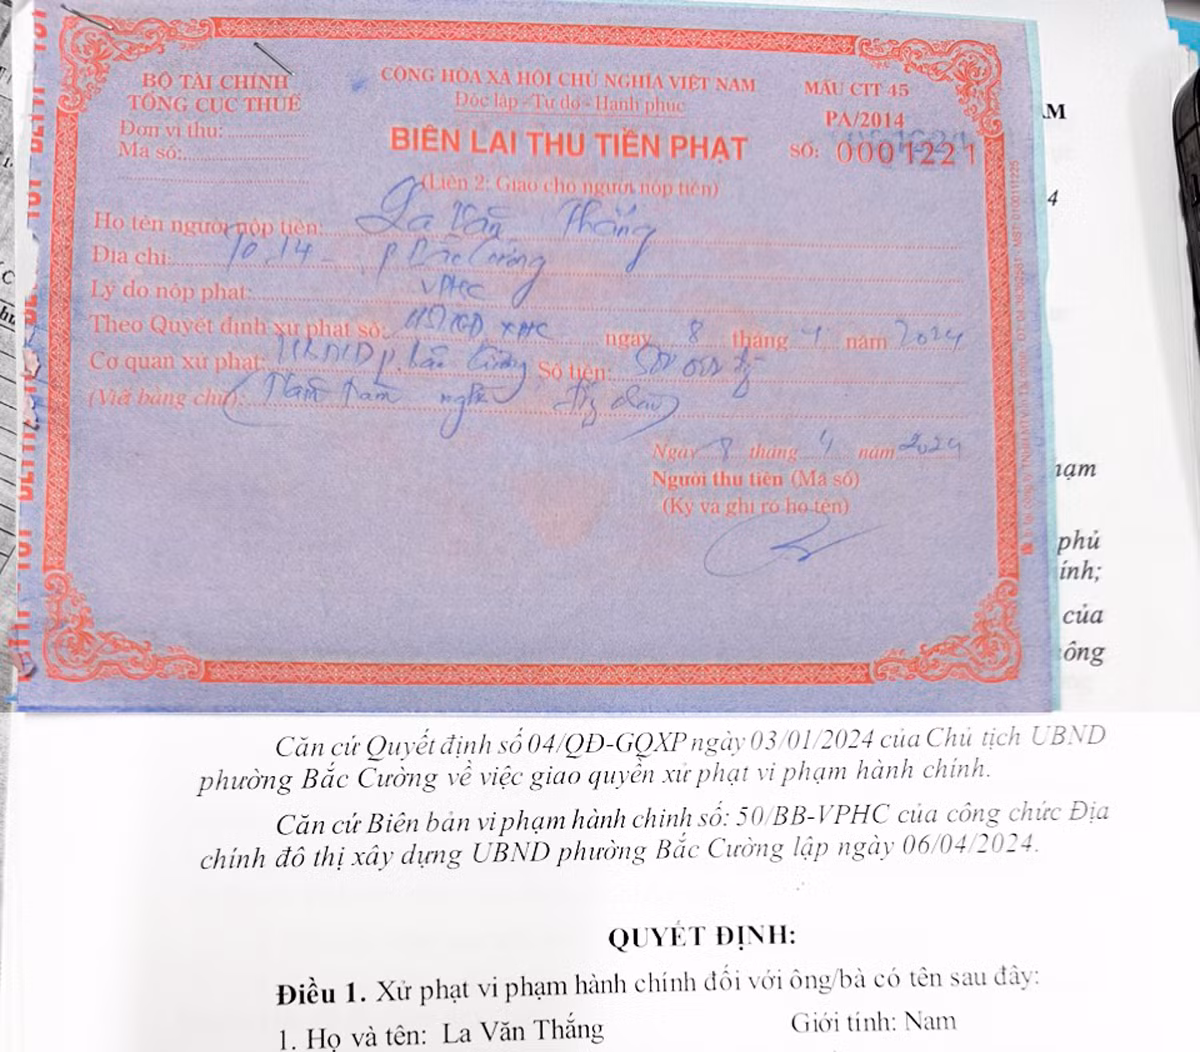 BỘ TÀI CHÍNH
TỔNG CỤC THUẾ
Đơn vị thu:
Mã số:
CỘNG HÒA XÃ HỘI CHỦ NGHĨA VIỆT NAM
Độc lập - Tự do - Hạnh phúc
BIÊN LAI THU TIỀN PHẠT
(Liên 2: Giao cho người nộp tiền)
MẪU CTT 45
PA/2014
SỐ: 0001221
Họ tên người nộp tiền: La Văn Thắng
Địa chỉ: Tổ 14 - P Bắc Cường
Lý do nộp phạt: VPHC
Theo Quyết định xử phạt số: ngày 8 tháng 4 năm 2024
Cơ quan xử phạt: UBND p. Bắc Cường Số tiền: 500 000đ
(Viết bằng chữ): (Năm trăm nghìn đồng chẵn)
Ngày 8 tháng 4 năm 2024
Người thu tiền (Mã số)
(Ký và ghi rõ họ tên)
ÁM
4
hạm
phủ
ính;
của
ông
Căn cứ Quyết định số 04/QĐ-GQXP ngày 03/01/2024 của Chủ tịch UBND
phường Bắc Cường về việc giao quyền xử phạt vi phạm hành chính.
Căn cứ Biên bản vi phạm hành chinh số: 50/BB-VPHC của công chức Địa
chính đô thị xây dựng UBND phường Bắc Cường lập ngày 06/04/2024.
QUYẾT ĐỊNH:
Điều 1. Xử phạt vi phạm hành chính đối với ông/bà có tên sau đây:
1. Họ và tên: La Văn Thắng Giới tính: Nam